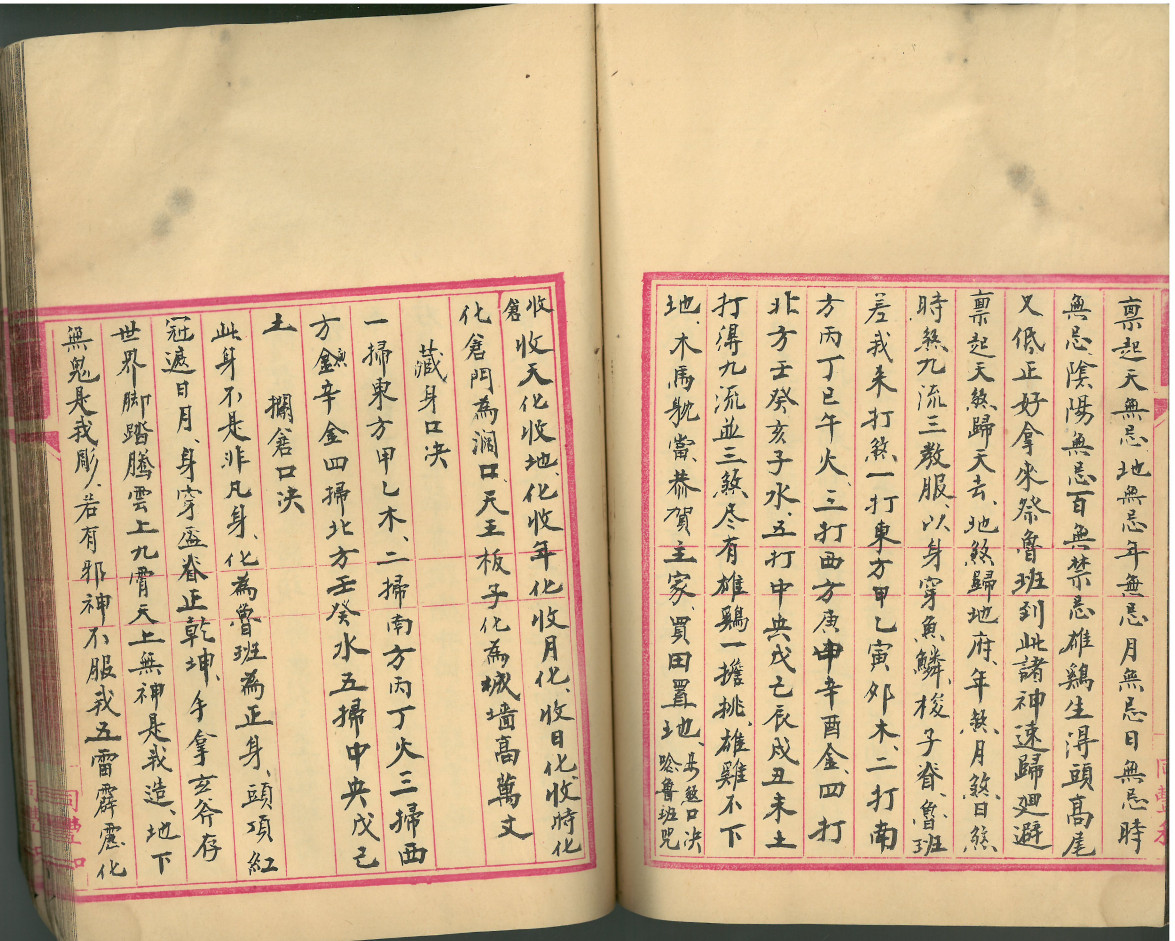 禀起天無忌地無忌年無忌月無忌日無忌時
無忌、陰陽無忌百無禁忌雄鷄生淂頭高尾
又低正好拿來祭魯班到此諸神速歸廻避
禀起天煞歸天去、地煞歸地府、年煞、月煞日煞
時煞九流三教服、以身穿魚鱗梭子脊、魯班
差我來打煞一打東方甲乙寅卯木、二打南
方丙丁巳午火、三打西方庚申辛酉金、四打
北方壬癸亥子水、五打中央戊己辰戌丑未土
打淂九流並三煞尽有雄鷄一擔挑、雄雞不下
地、木馬躭當恭賀主家、買田置地、 煞口决 唸魯班咒
收 收天化收地、化收年化收月化、收日化、收時化
化倉門為澗口、天王板子化為城墙高萬丈
藏身口决
一掃東方甲乙木、二掃南方丙丁火三掃西
方 辛金四掃北方壬癸水五掃中央戊己
土 攔 口决
此身不是非凡身、化為魯班為正身、頭項紅
冠遮日月、身穿 脊正乾坤、手拿玄斧存
世界脚踏騰雲上九霄天上無神是我造、地下
無鬼是我彫、若有邪神不服我五雷霹靂化